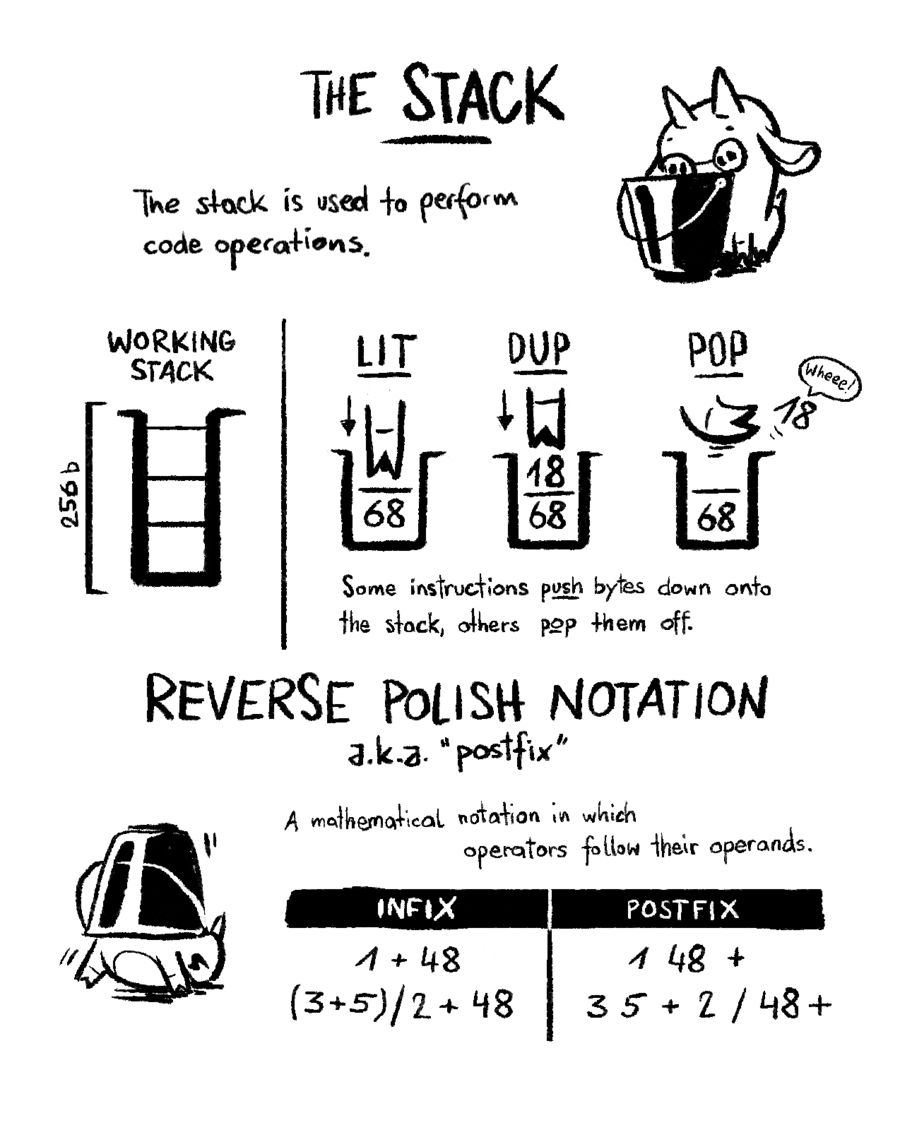 THE STACK
The stack is used to perform
code operations.
WORKING
STACK
256b
LIT
68
DUP
18
68
POP
Wheee!
18
68
Some instructions push bytes down onto
the stack, others pop them off.
REVERSE POLISH NOTATION
a.k.a. "postfix"
A mathematical notation in which
operators follow their operands.
INFIX
POSTFIX
1 + 48
1 48 +
(3+5)/2 + 48
3 5 + 2 / 48 +